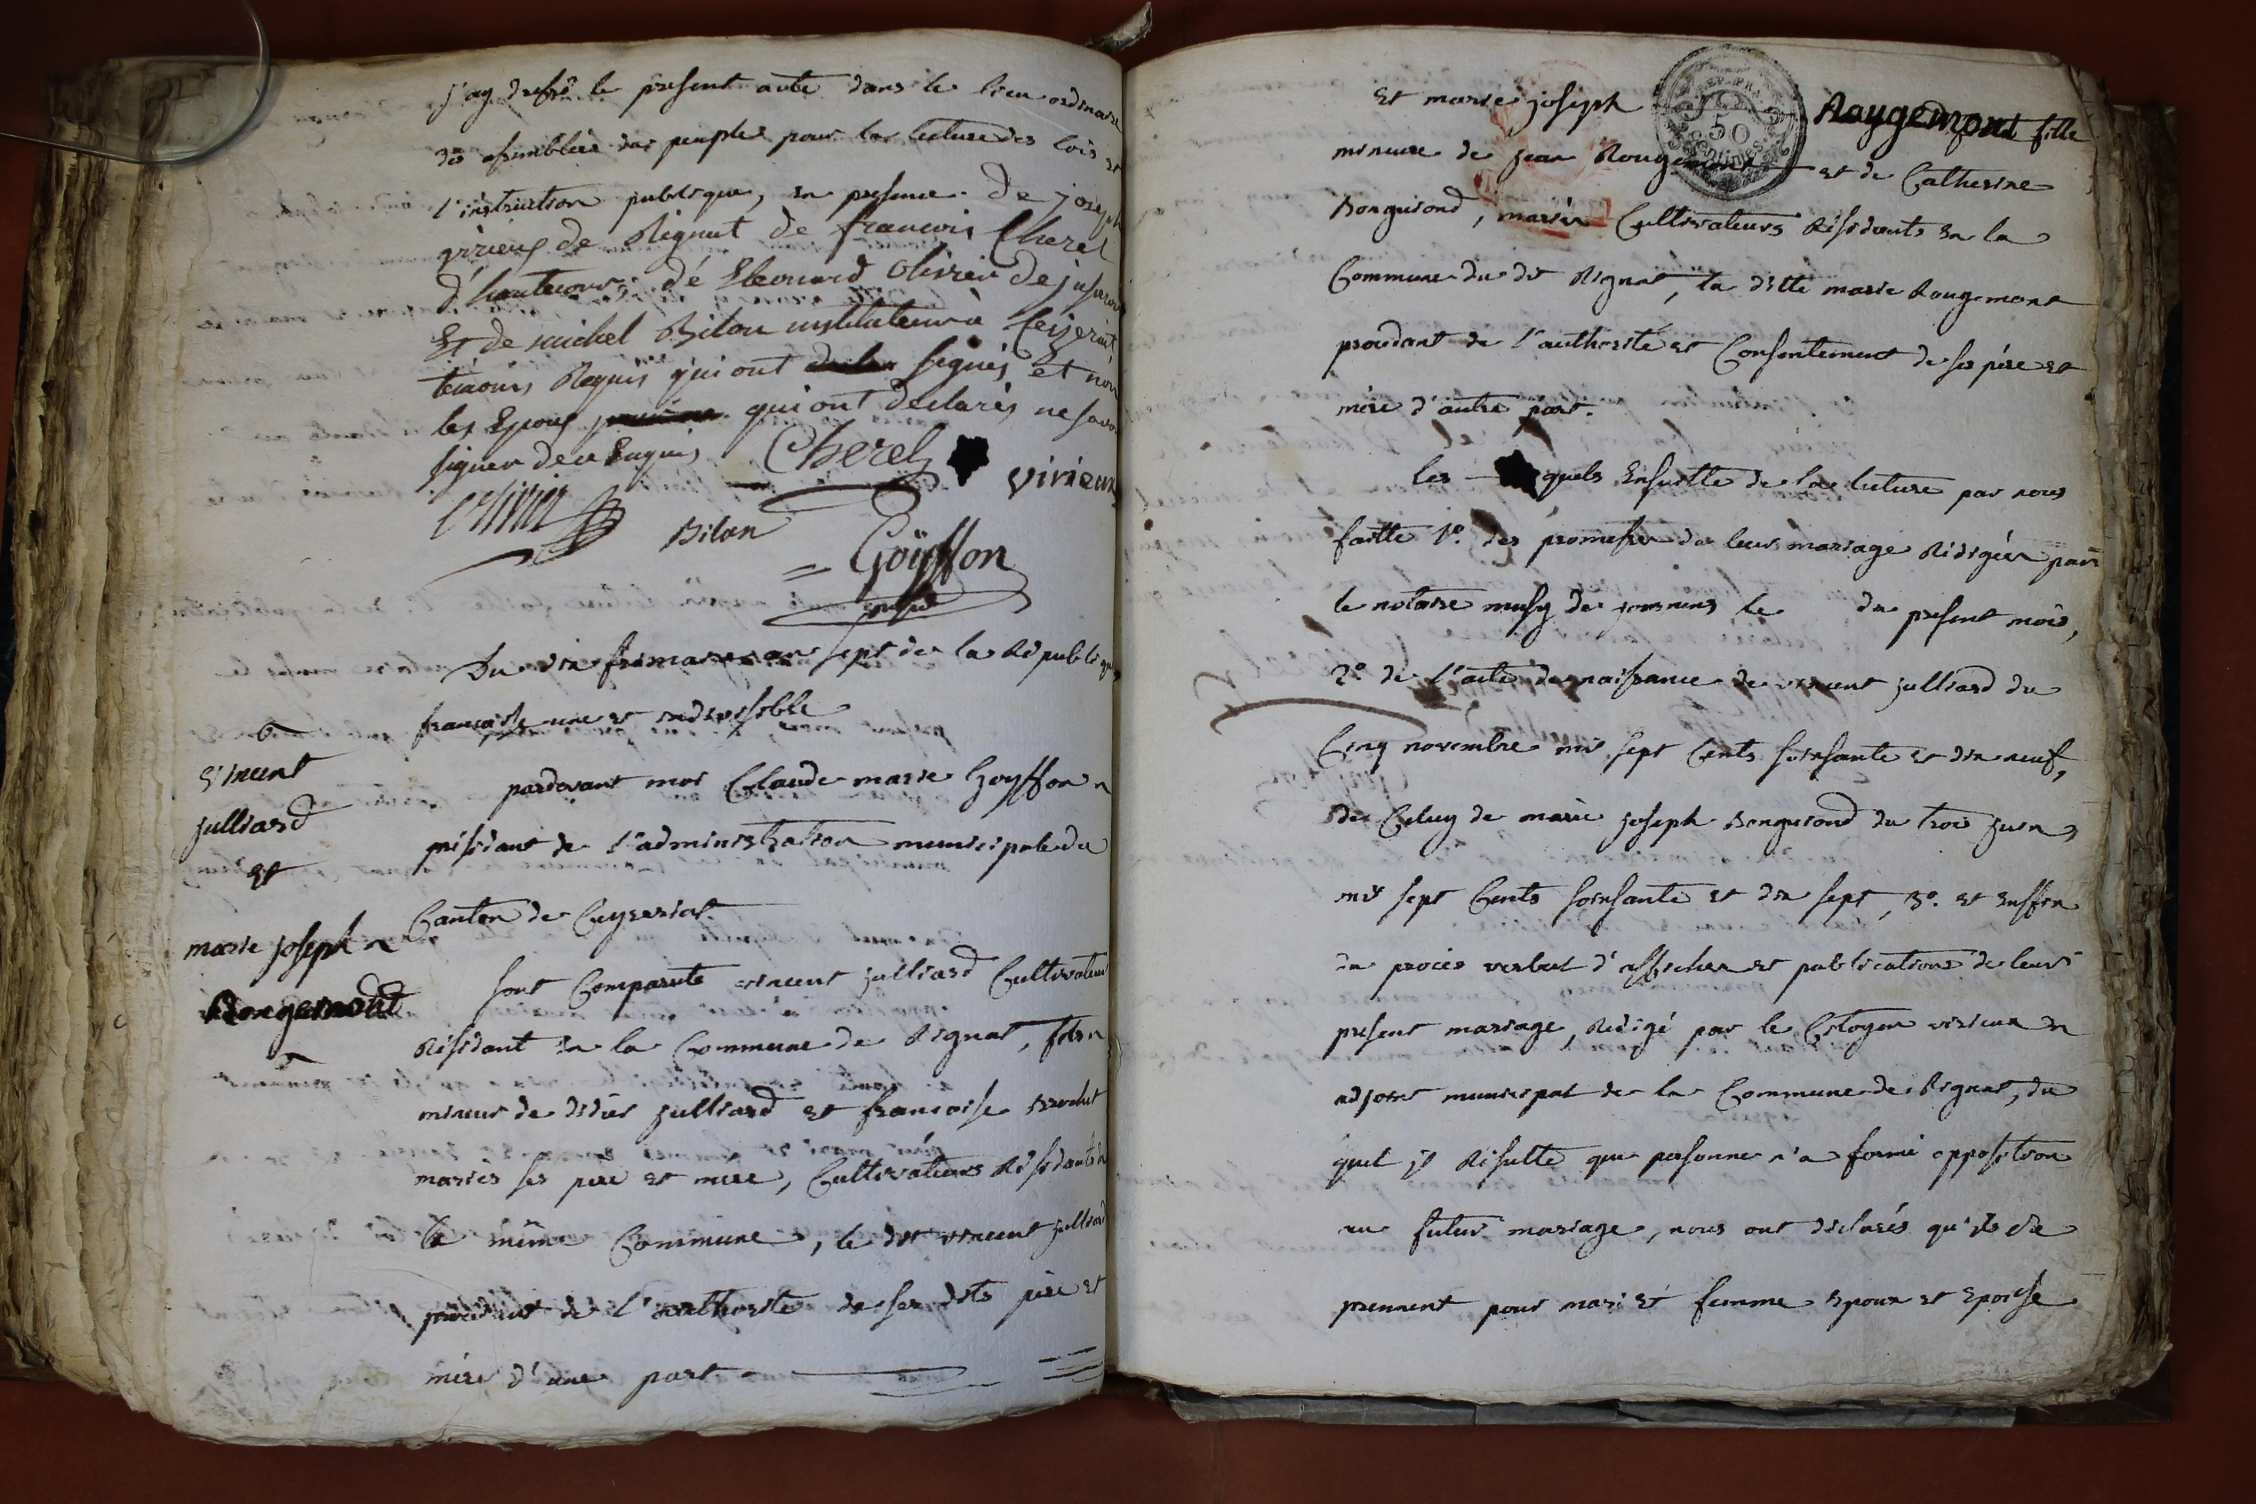 j'ay dressé le present acte dans le lieu ordinaire
des assemblées du peuple pour la lecture des lois et
l'instruction publique, en presence de joseph
virieux de Rignat de francois Cherel
d'hautecour, de Leonard Olivier de jasseron
Et de michel Bilon instituteur à Ceizeriat
temoins Requis qui ont signés et non
les Epoux qui ont declarés ne savoir
signer de ce Enquis
Cherel
virieux
Olivier
Bilon
Goÿffon
Du dix frimaire an sept de la Republique
francaise une et indivisible
vincent
julliard
et
marie joseph
Rougemont
pardevant moi Claude marie Goyffon
président de l'administration municipale du
Canton de Ceyzeriat
sont Comparute vincent julliard Cultivateur
Résidant en la Commune de Rignat, fils
mineur de didier julliard et francoise Brochut
mariés ses pere et mere, Cultivateurs Résidants en
la même Commune, le dit vincent julliard
procédant de l'authorité de ses dits père et
mère d'une part
et marie joseph Rougemont fille
REP. FRA.
50
Centimes
mineure de jean Rougemont et de Catherine
Bonguiond, mariés Cultivateurs Résidants en la
Commune du dit Rignat, la ditte marie Rougemont
procédant de l'authorité et Consentement de ses père et
mère d'autre part.
les quels Ensuitte de la lecture par nous
faitte 1°. des promesses de leur mariage Rédigées par
le notaire musy de journans le du present mois,
2°. de l'acte de naissance de vincent julliard du
Cinq novembre mil sept Cents soissante et dix neuf,
de Celuy de marie joseph Bonguiond du trois juin
mil sept Cents soissante et dix sept, 3°. et Enffin
du procès verbal d'affiches et publications de leur
present mariage, Redigé par le Citoyen virieux
adjoint municipal de la Commune de Rignat, du
quel il Résulte que personne n'a formé opposition
au futur mariage, nous ont déclarés qu'ils se
prennent pour mari et femme Epoux et Epouse